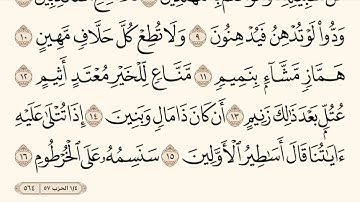 وَدُّوا۟ لَوْ تُدْهِنُ فَيُدْهِنُونَ ٩ وَلَا تُطِعْ كُلَّ حَلَّافٍ مَّهِينٍ ١٠
هَمَّازٍ مَّشَّآءٍۭ بِنَمِيمٍ ١١ مَّنَّاعٍ لِّلْخَيْرِ مُعْتَدٍ أَثِيمٍ ١٢
عُتُلٍّۭ بَعْدَ ذَٰلِكَ زَنِيمٍ ١٣ أَن كَانَ ذَا مَالٍ وَبَنِينَ ١٤ إِذَا تُتْلَىٰ عَلَيْهِ
ءَايَٰتُنَا قَالَ أَسَٰطِيرُ ٱلْأَوَّلِينَ ١٥ سَنَسِمُهُۥ عَلَى ٱلْخُرْطُومِ ١٦
١/٤ الحزب ٥٧ ٥٦٤